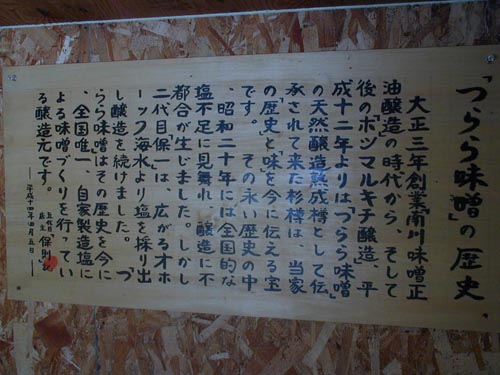 「つらら味噌」の歴史
大正三年創業南川味噌正
油醸造の時代から、そして
後のホシマルキチ醸造、平
成十二年よりは「つらら味噌」
の天然醸造熟成樽として伝
承されて来た杉樽は、当家
の「歴史」と「味」を今に伝える宝
です。その永い歴史の中
、昭和二十年には全国的な
塩不足に見舞れ、醸造に不
都合が生じました。しかし
二代目保一は、広がるオホ
ーツク海水より塩を採り出
し醸造を続けました。「つ
らら味噌」はその歴史を今に
、全国唯一、自家製造塩に
よる味噌づくりを行ってい
る醸造元です。
平成十四年四月五日
五代目
保則